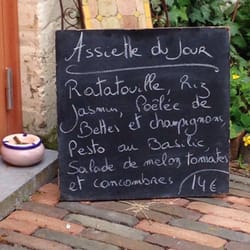 Assiette du Jour
Ratatouille, Riz
Jasmin, Poêlée de
Bettes et champignons
Pesto au Basilic,
Salade de melon tomates
et concombres 14€